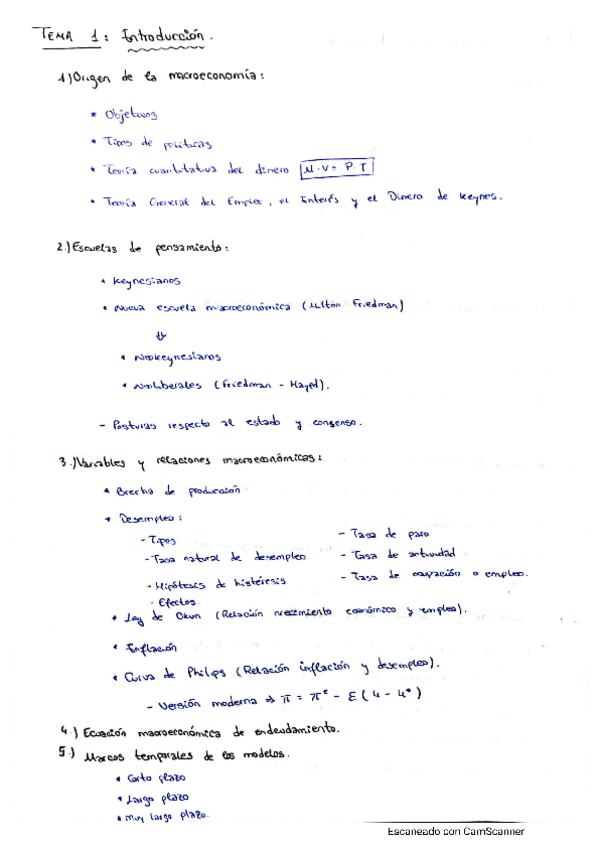 TEMA 1: Introducción.
1) Origen de la macroeconomía:
* Objetivos
* Tipos de políticas
* Teoría cuantitativa del dinero M·V = P·T
* Teoría General del Empleo, el Interés y el Dinero de Keynes.
2.) Escuelas de pensamiento:
* Keynesianos
* Nueva escuela macroeconómica (Milton Friedman)
⇓
* Neokeynesianos
* Neoliberales (Friedman - Hayek).
- Posturas respecto al estado y consenso.
3.) Variables y relaciones macroeconómicas:
* Brecha de producción
* Desempleo:
- Tipos
- Tasa natural de desempleo
- Hipótesis de histéresis
- Efectos.
- Tasa de paro
- Tasa de actividad
- Tasa de ocupación o empleo.
* Ley de Okun (Relación crecimiento económico y empleo).
* Inflación
* Curva de Philips (Relación inflación y desempleo).
- Versión moderna ⇒ π = πᵉ - ε(u - u*)
4.) Ecuación macroeconómica de endeudamiento.
5.) Marcos temporales de los modelos.
* Corto plazo
* Largo plazo
* Muy largo plazo.
Escaneado con CamScanner